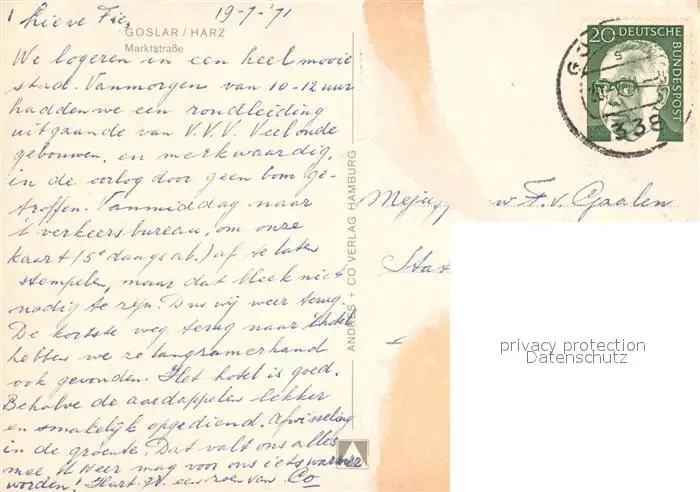 Lieve Fie, 19-7-'71
GOSLAR / HARZ
Marktstraße
We logeren in een heel mooie
stad. Vanmorgen van 10-12 uur
hadden we een rondleiding
uitgaande van V.V.V. Veel oude
gebouwen, en merkwaardig,
in de oorlog door geen bom ge-
troffen. Vanmiddag naar
't verkeersbureau, om onze
kaart (5e daags ab.) af te laten
stempelen, maar dat bleek niet
nodig te zijn. Dus wij weer terug.
De kortste weg terug naar 't hotel
hebben we zo langzamerhand
ook gevonden. Het hotel is goed.
Behalve de aardappelen lekker
en smakelijk opgediend. Afwisseling
in de groente. Dat valt ons alles
mee. 't Weer mag voor ons iets warmer
worden! Hart. gr. een zoen van Co
ANDRES + CO VERLAG HAMBURG
20 DEUTSCHE
BUNDESPOST
338
w F. v. Gaalen
privacy protection
Datenschutz